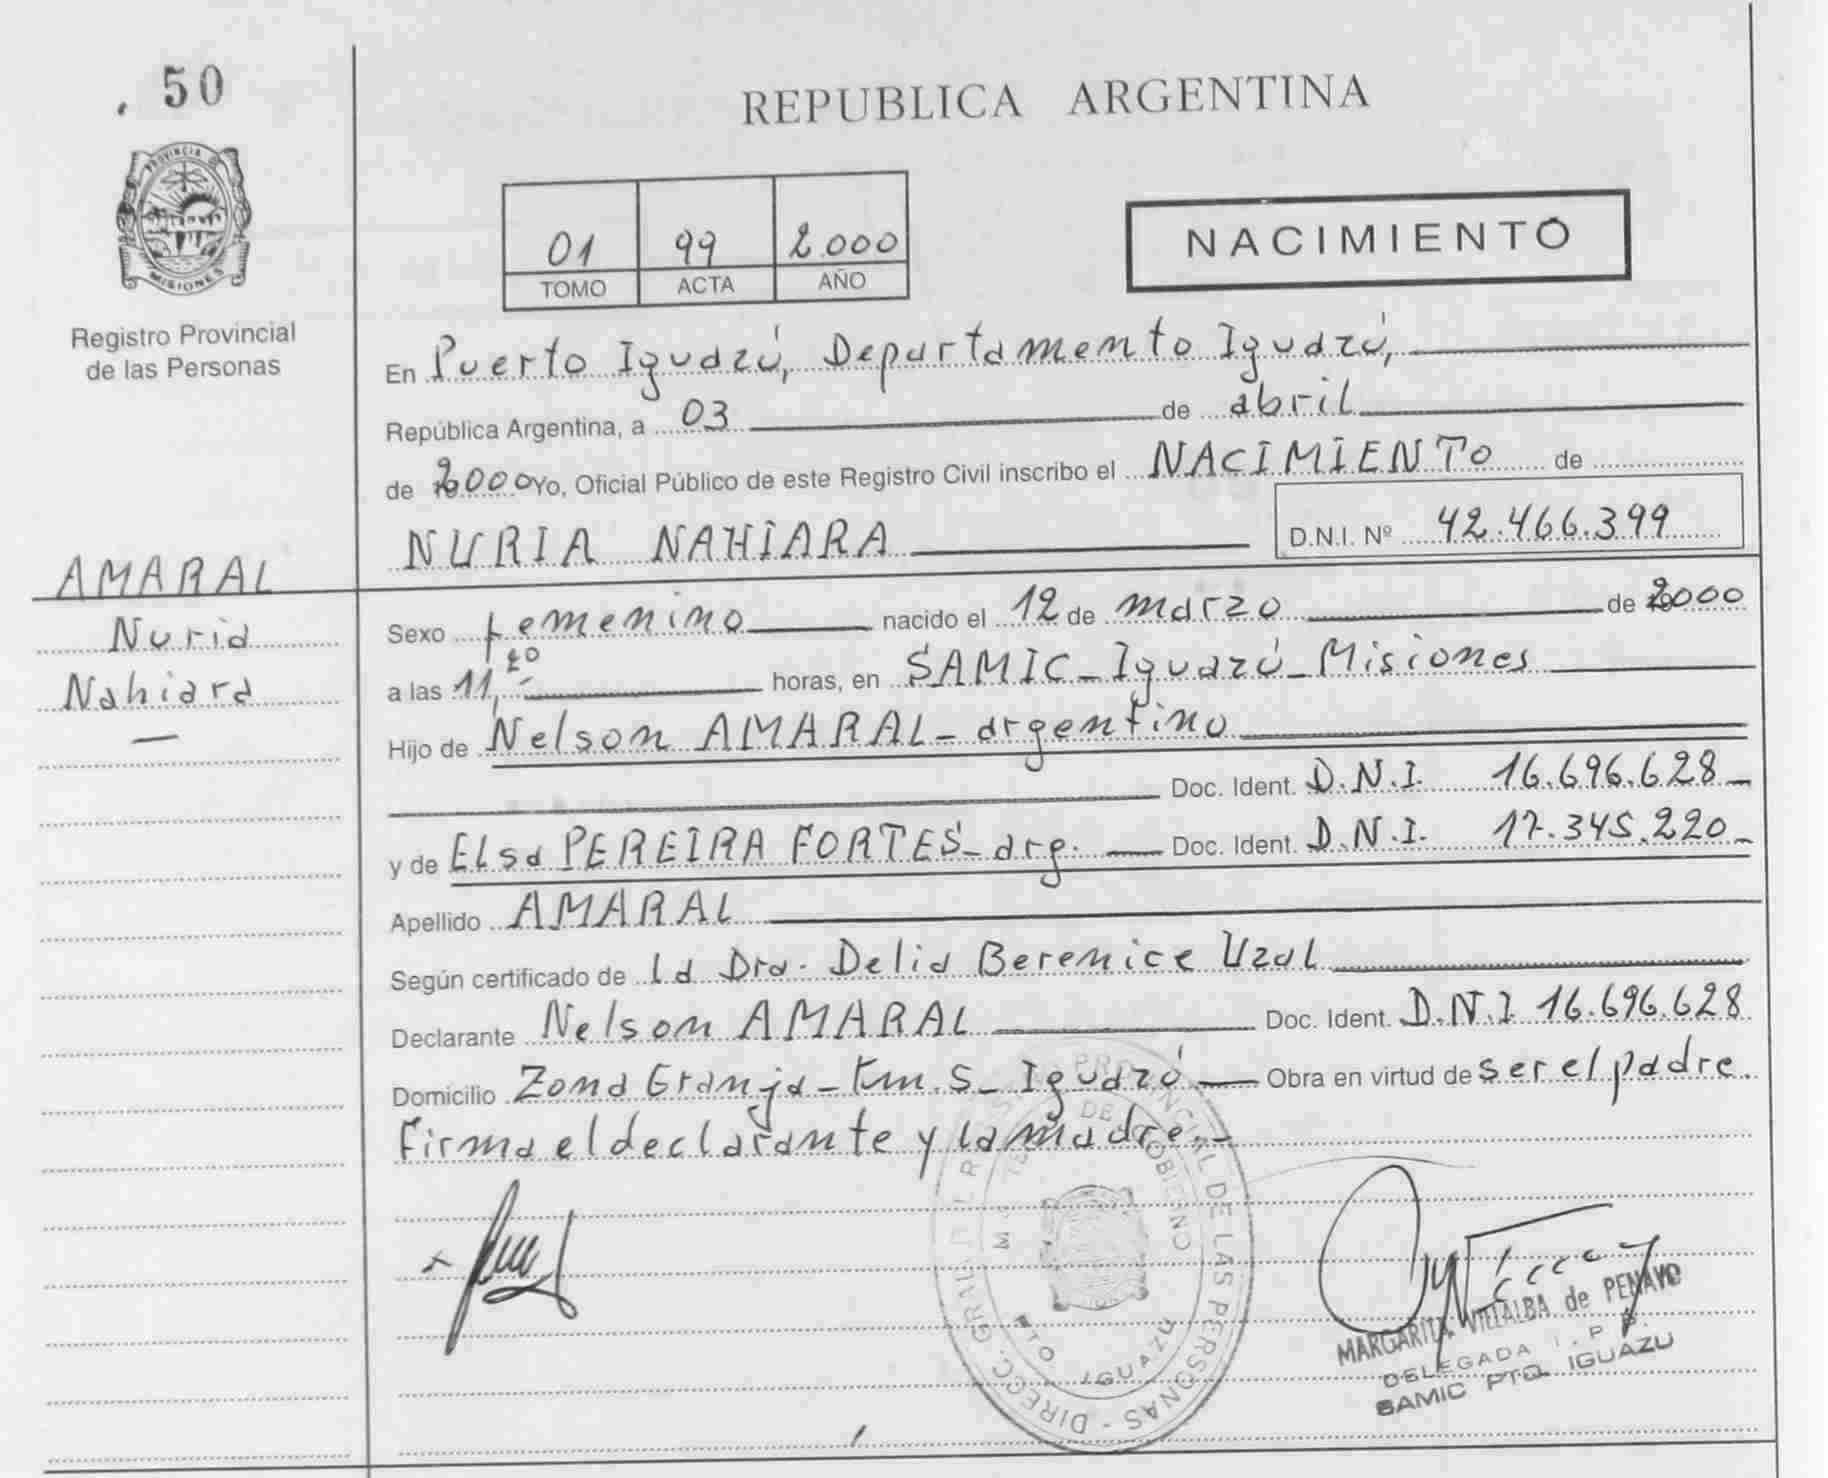 . 50
PROVINCIA DE
MISIONES
Registro Provincial
de las Personas
AMARAL
Nuria
Nahiara
—
REPUBLICA ARGENTINA
01 99 2.000
TOMO ACTA AÑO
NACIMIENTO
En Puerto Iguazú, Departamento Iguazú,
República Argentina, a 03 de abril
de 2000 Yo, Oficial Público de este Registro Civil inscribo el NACIMIENTO de
NURIA NAHIARA D.N.I. Nº 42.466.399
Sexo femenino nacido el 12 de marzo de 2000
a las 11,20 horas, en SAMIC - Iguazú - Misiones
Hijo de Nelson AMARAL - argentino
Doc. Ident. D.N.I. 16.696.628 -
y de Elsa PEREIRA FORTES - arg. Doc. Ident. D.N.I. 17.345.220 -
Apellido AMARAL
Según certificado de la Dra. Delia Berenice Uzal
Declarante Nelson AMARAL Doc. Ident. D.N.I 16.696.628
Domicilio Zona Granja - Km. 5 - Iguazú Obra en virtud de ser el padre.
Firma el declarante y la madre. -
DIRECC. GRAL. DEL PROVINCIAL DE LAS PERSONAS -
DE GOBIERNO
PTO. IGUAZU
MARGARITA VILLALBA de PENAYO
DELEGADA
SAMIC PTO. IGUAZU